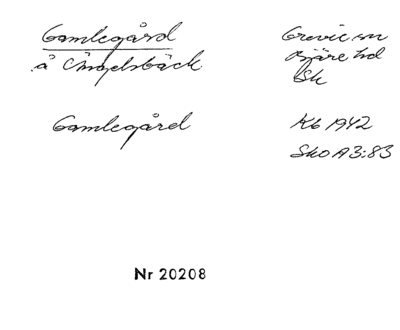 Gamlegård
å Ängelsbäck
Grevie sn
Bjäre hd
Sk
Gamlegård
Kb 1942
Sko A3:83
Nr 20208